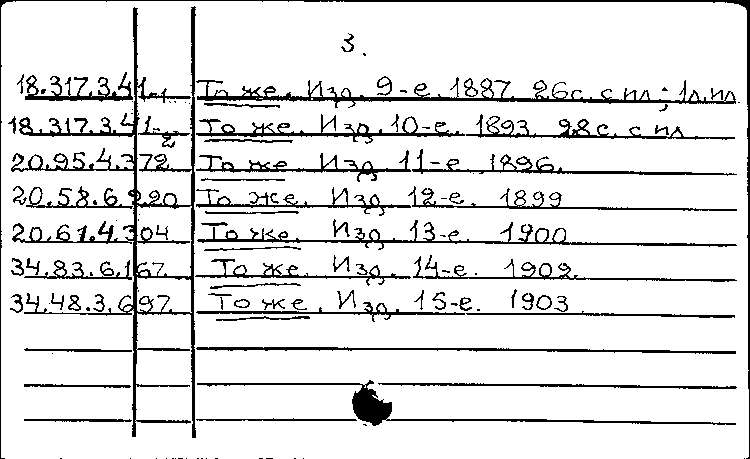 3.
18.317.3.41-1 То же. Изд. 9-е. 1887. 26с. с ил; 1л.ил
18.317.3.41-2 То же. Изд. 10-е. 1893. 28с. с ил.
20.95.4.372 То же Изд 11-е 1896.
20.58.6.220 То же. Изд. 12-е. 1899
20.61.4.304 То же. Изд. 13-е. 1900
34.83.6.167. То же. Изд. 14-е. 1902.
34.48.3.697. То же. Изд. 15-е. 1903